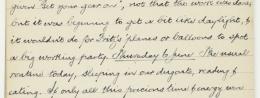 given "Get your gear on", not that the work was done,
but it was beginning to get a bit like daylight, &
it wouldn't do for Fritz's planes or balloons to spot
a big working party. Thursday 6 June. The usual
routine today, sleeping in our dugouts, reading &
eating. If only all this precious time & energy were